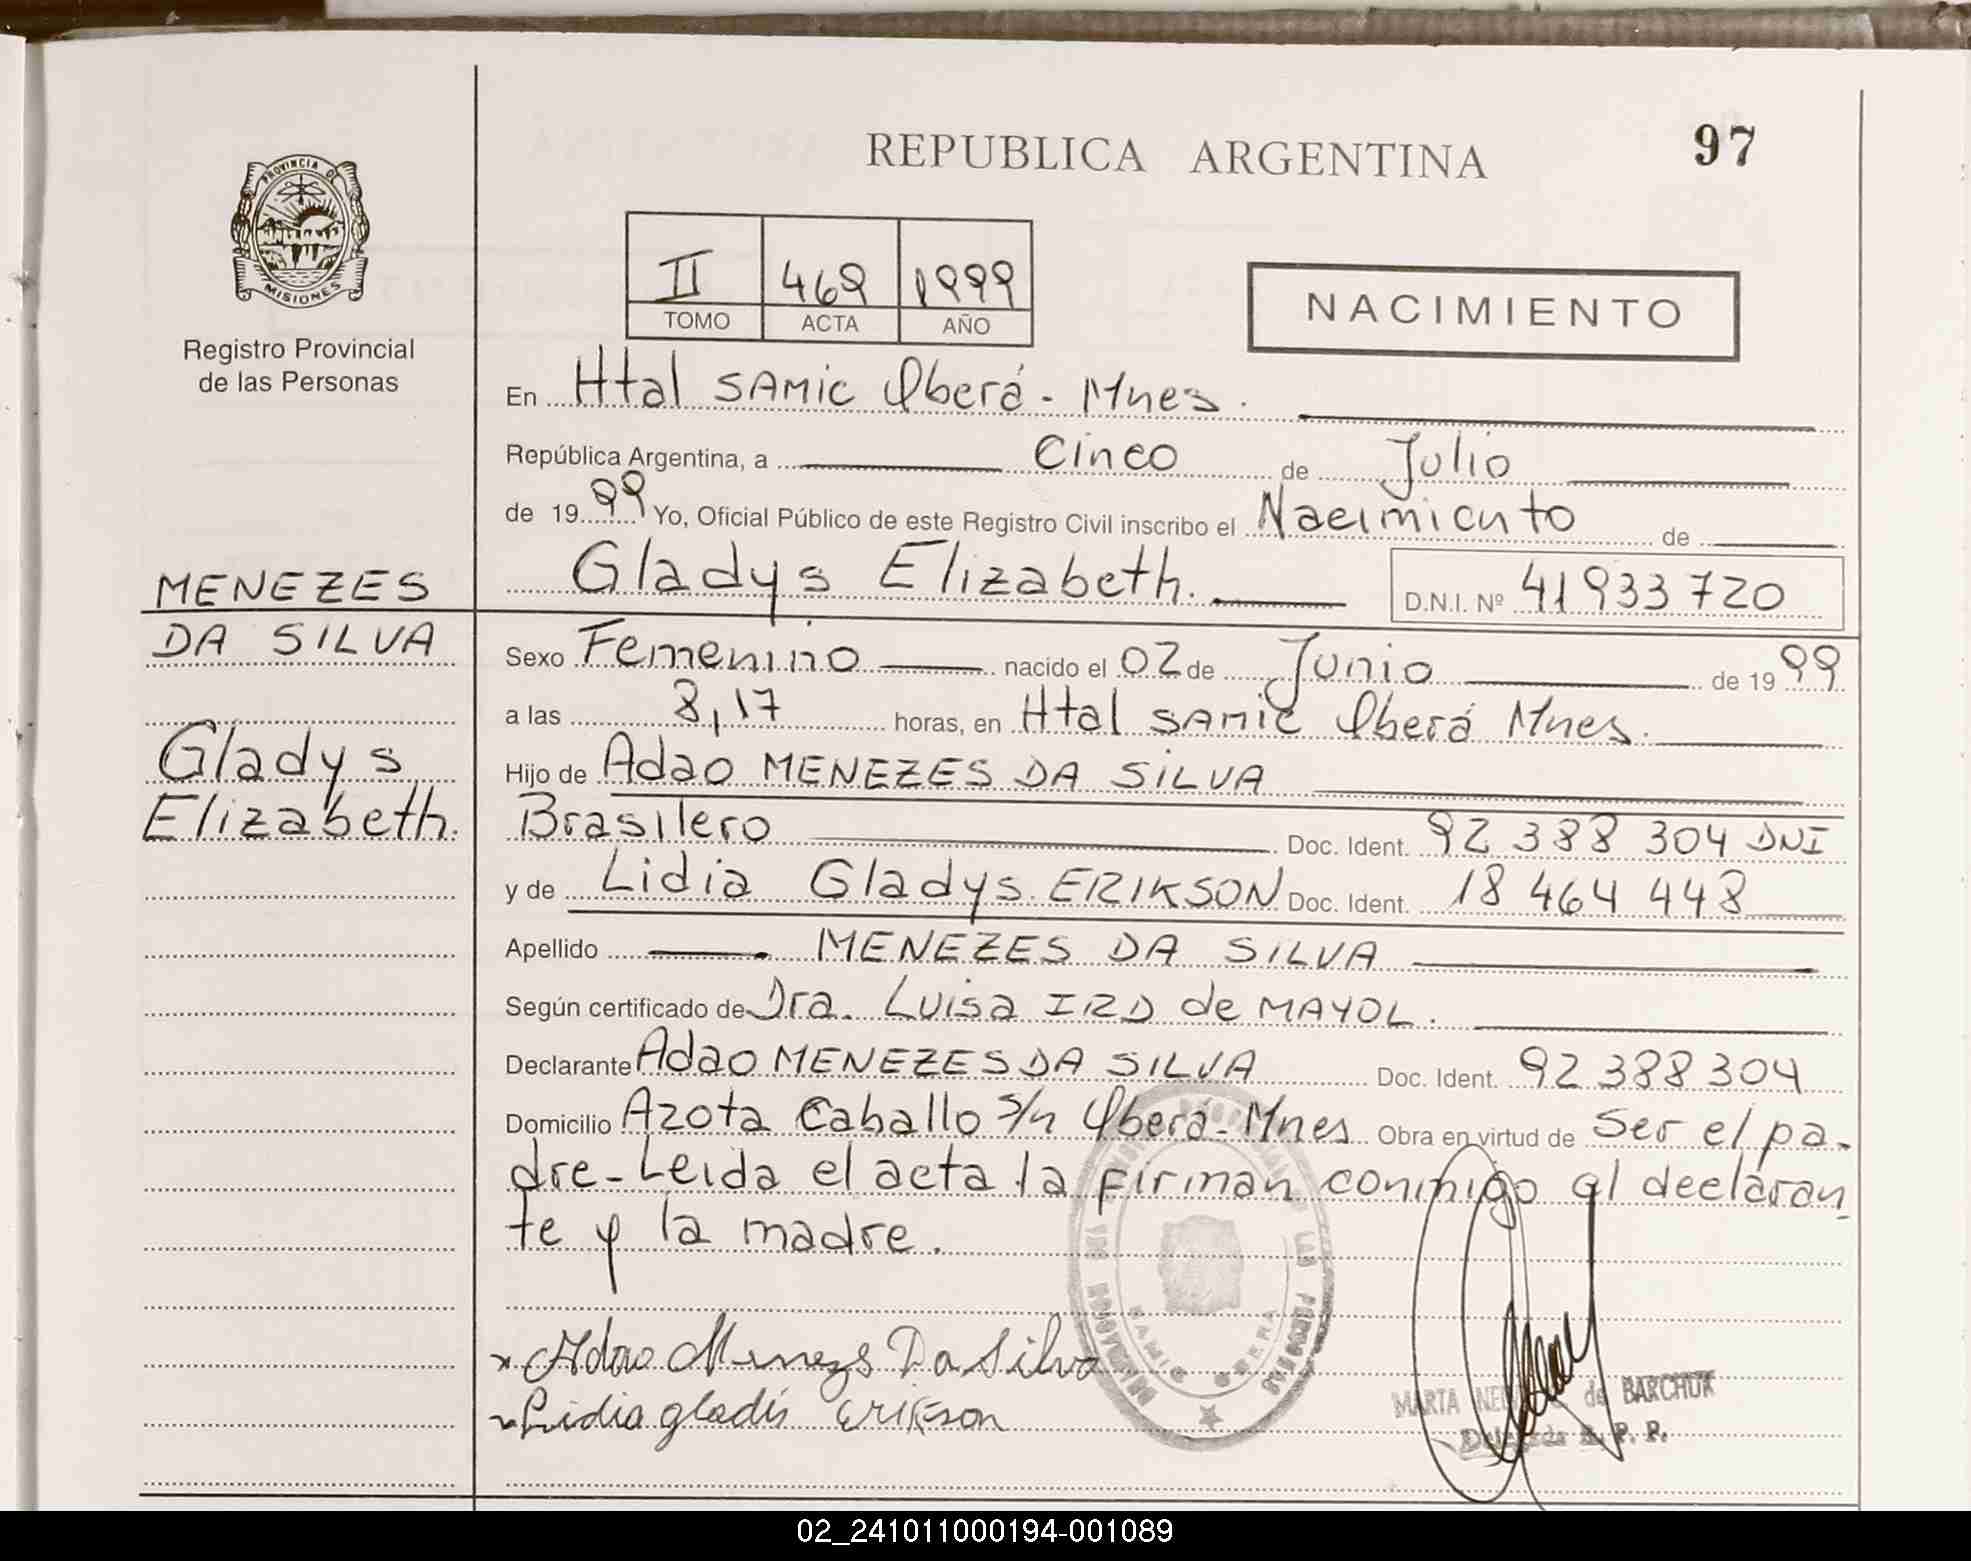 REPUBLICA ARGENTINA
97
PROVINCIA DE
MISIONES
Registro Provincial
de las Personas
II 469 1999
TOMO ACTA AÑO
NACIMIENTO
En Htal SAMIC Oberá - Mnes.
República Argentina, a Cinco de Julio
de 1999 Yo, Oficial Público de este Registro Civil inscribo el Nacimiento de
Gladys Elizabeth. D.N.I. Nº 41933720
MENEZES
DA SILVA
Gladys
Elizabeth.
Sexo Femenino nacido el 02 de Junio de 1999
a las 8,17 horas, en Htal SAMIC Oberá Mnes.
Hijo de Adao MENEZES DA SILVA
Brasilero Doc. Ident. 92 388 304 DNI
y de Lidia Gladys ERIKSON Doc. Ident. 18 464 448
Apellido MENEZES DA SILVA
Según certificado de Dra. Luisa IRD de MAYOL.
Declarante Adao MENEZES DA SILVA Doc. Ident. 92 388 304
Domicilio Azota Caballo S/n Oberá - Mnes Obra en virtud de ser el pa-
dre - Leida el acta la firman conmigo el declaran
te y la madre.
Adao Menezs Da Silva
Lidia gladis Erikson
MARTA de BARCHUK
R. P. P.
02_241011000194-001089